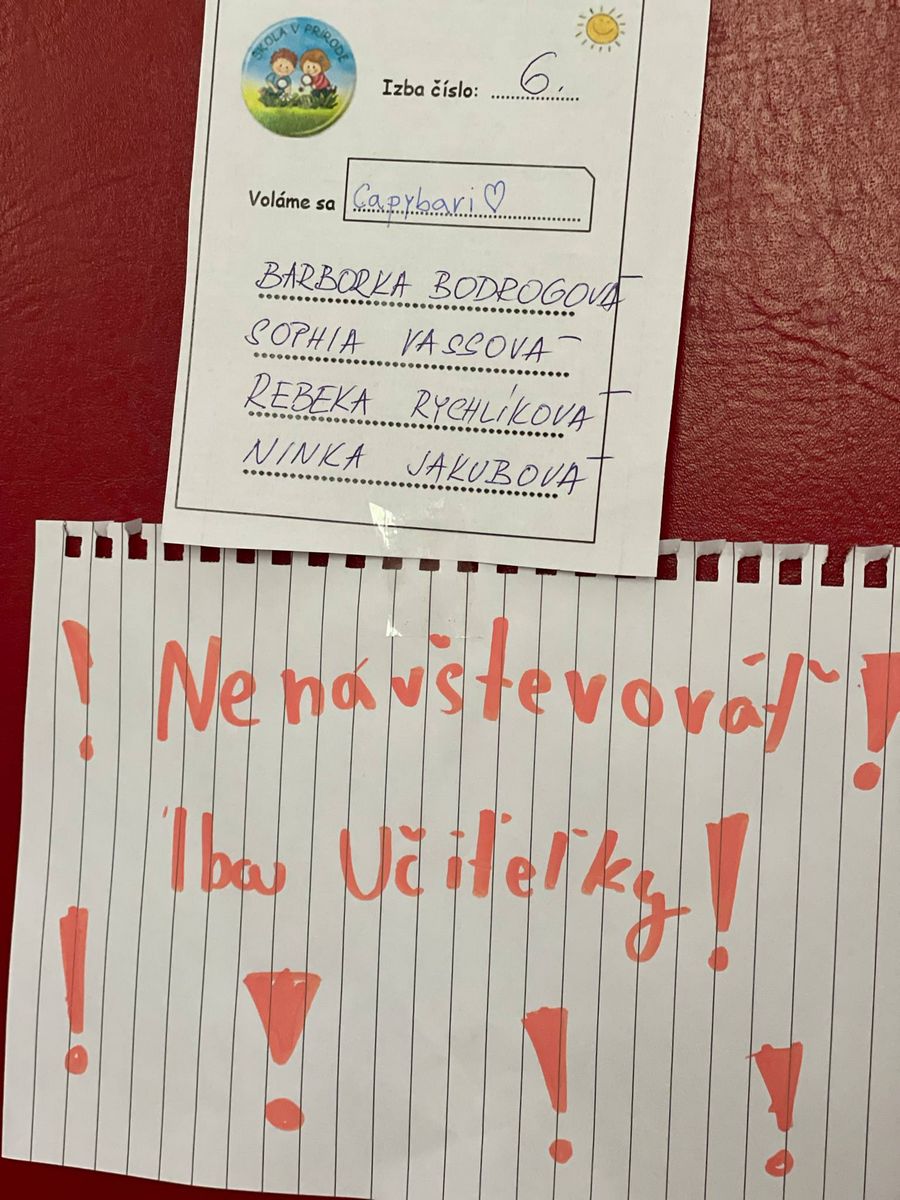 ŠKOLA V PRÍRODE
Izba číslo: 6.
Voláme sa Capybari♡
BARBORKA BODROGOVÁ
SOPHIA VASSOVÁ
REBEKA RYCHLÍKOVÁ
NINKA JAKUBOVÁ
! Nenávštevovať !
Iba Učiteľky!
! ! ! !